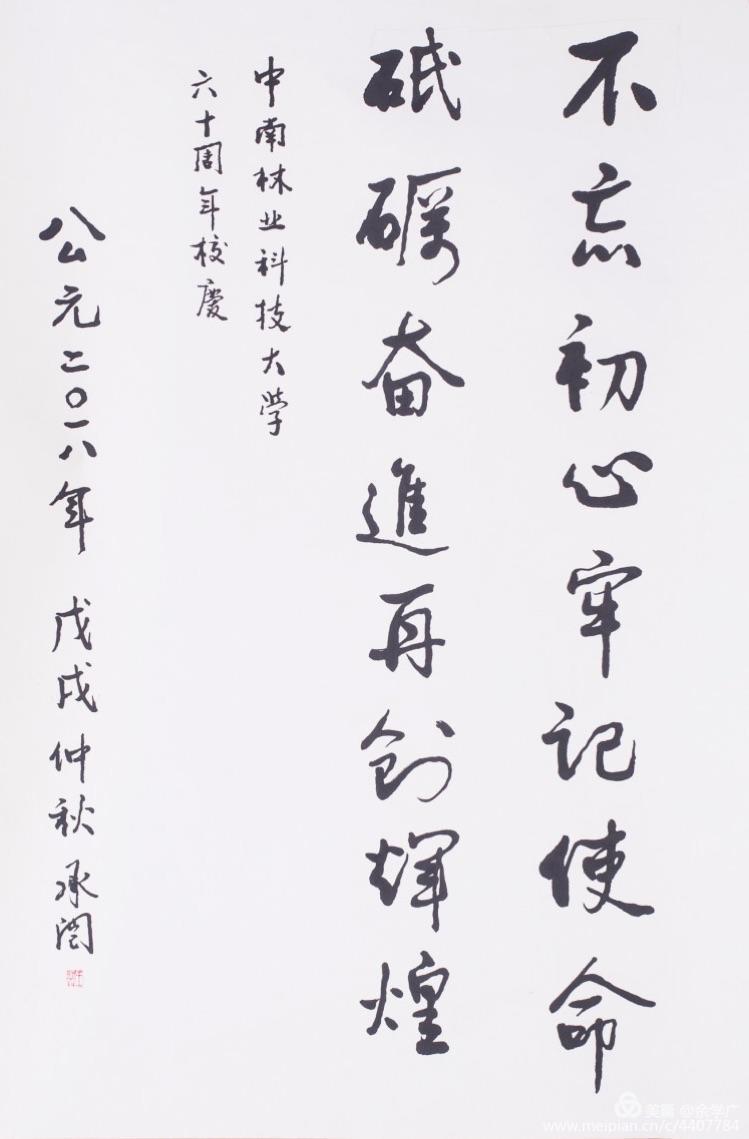 不忘初心牢记使命
砥礪奋進再创辉煌
中南林业科技大学
六十周年校慶
公元二〇一八年 戊戌仲秋承訚
美篇 @余学广
www.meipian.cn/c/4407784